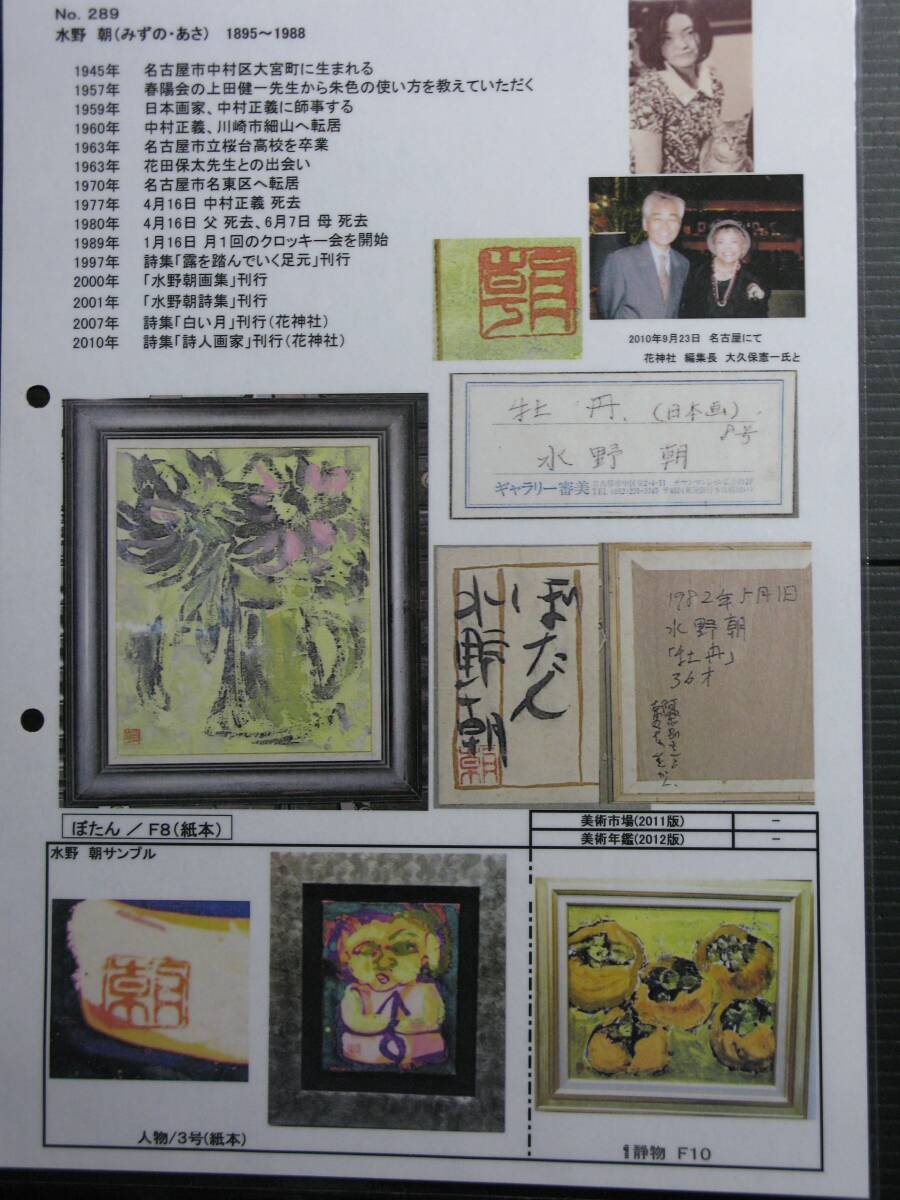 No. 289
水野 朝(みずの・あさ) 1895～1988
1945年 名古屋市中村区大宮町に生まれる
1957年 春陽会の上田健一先生から朱色の使い方を教えていただく
1959年 日本画家、中村正義に師事する
1960年 中村正義、川崎市細山へ転居
1963年 名古屋市立桜台高校を卒業
1963年 花田保太先生との出会い
1970年 名古屋市名東区へ転居
1977年 4月16日 中村正義 死去
1980年 4月16日 父 死去、6月7日 母 死去
1989年 1月16日 月1回のクロッキー会を開始
1997年 詩集「露を踏んでいく足元」刊行
2000年 「水野朝画集」刊行
2001年 「水野朝詩集」刊行
2007年 詩集「白い月」刊行(花神社)
2010年 詩集「詩人画家」刊行(花神社)
朝
2010年9月23日 名古屋にて
花神社 編集長 大久保憲一氏と
牡丹.(日本画).
8号
水野 朝
ギャラリー審美
ぼたん
水野朝
朝
1982年5月1日
水野朝
「牡丹」
36才
朝
ぼたん / F8(紙本)
美術市場(2011版) －
美術年鑑(2012版) －
水野 朝サンプル
朝
人物/3号(紙本)
静物 F10